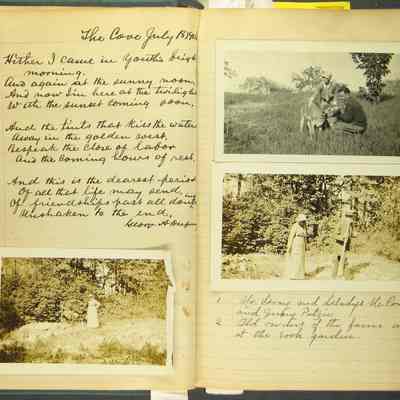 The Cove July 15
Hither I came in Youth's bright
morning,
And again at the sunny noon,
And now I'm here at the twilight
With the sunset coming soon,
And the tints that kiss the water
Away in the golden west,
Bespeak the close of labor
And the coming hours of rest,
And this is the dearest period
Of all that life may send,
Of friendships past all
Unshaken to the end,
1 and Gladys
and
2 Old of the farm
at the rock garden